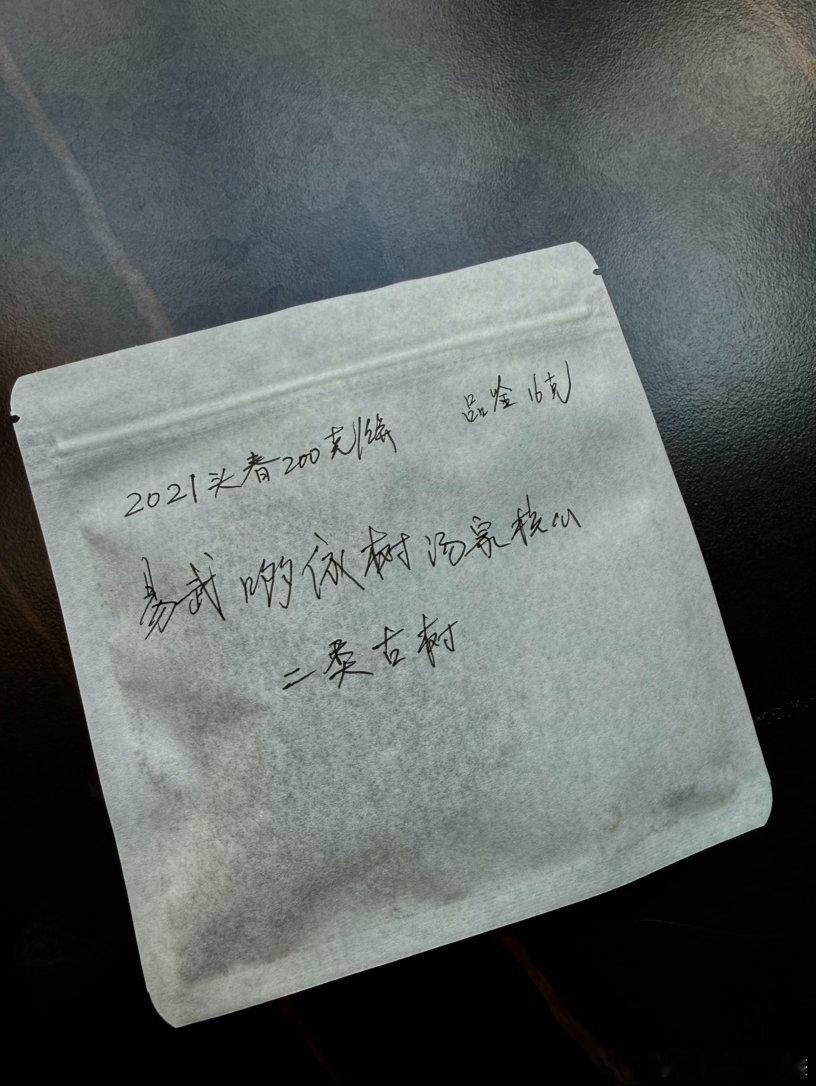 2021头春200克/饼 品鉴16克
易武哆依树汤家山
二类古树